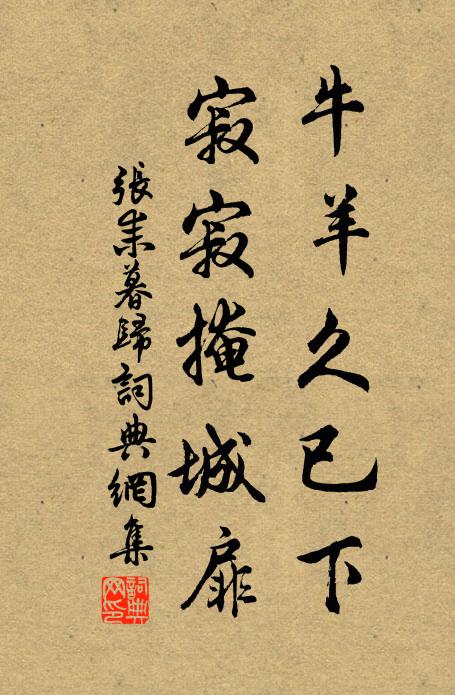 牛羊久已下
寂寂掩城扉
張耒暮歸詞典網集
詞典網印